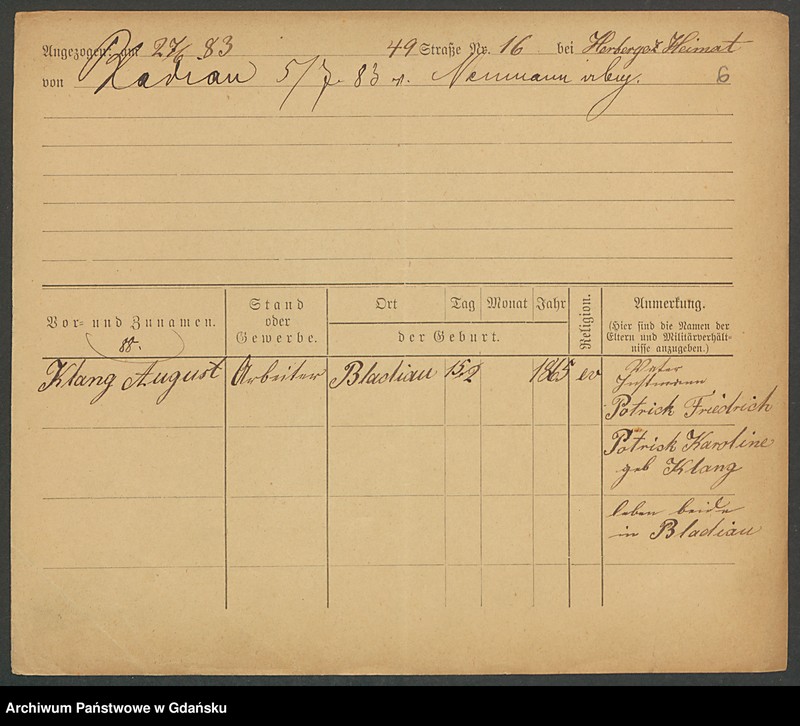 Angezogen: am 27/6 83 49 Straße Nr. 16 bei Herberge z Heimat
von Bladiau 5/7 83 v. Neumann 6
Vor- und Zunamen.
Stand
oder
Gewerbe.
Ort Tag Monat Jahr
der Geburt.
Religion.
Anmerkung.
(Hier sind die Namen der
Eltern und Militärverhält-
nisse anzugeben.)
Klang August Arbeiter Bladiau 15 2 1865 ev
Vater
Instmann
Potrick Friedrich
Potrick Karoline
geb Klang
leben beide
in Bladiau
Archiwum Państwowe w Gdańsku